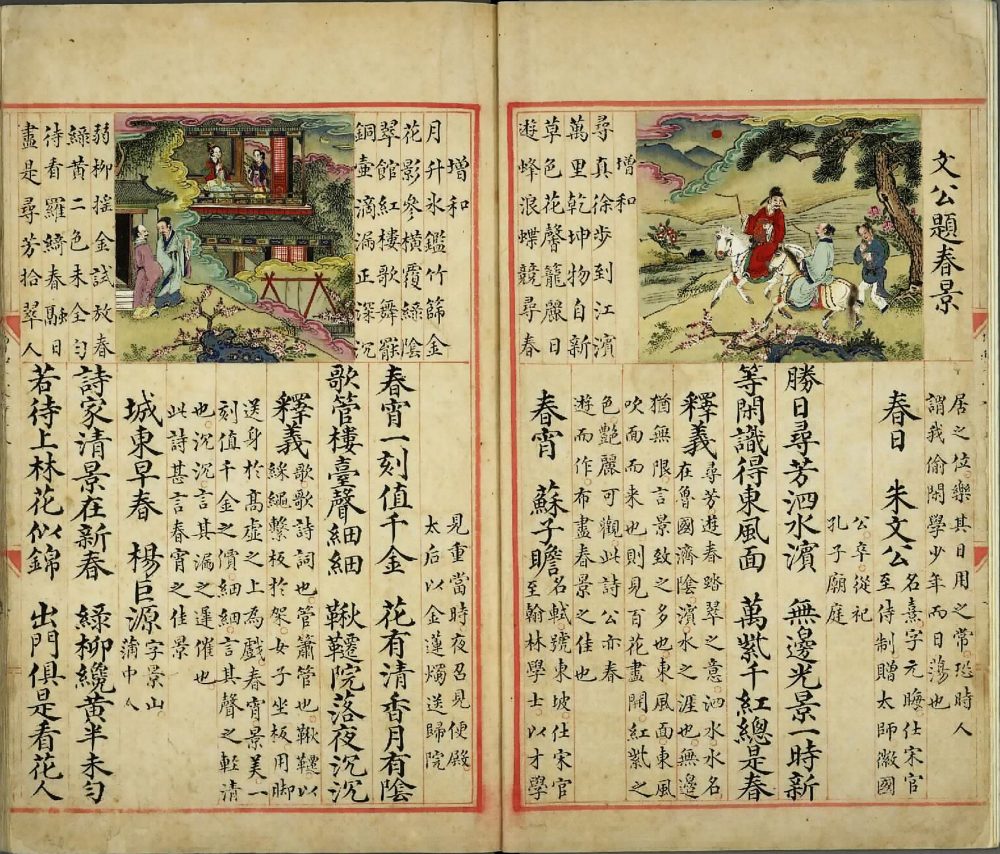 文公題春景
增和
尋真徐步到江濱
萬里乾坤物自新
草色花馨籠麗日
遊蜂浪蝶競尋春
居之位樂其日用之常恐時人
謂我偷閑學少年而日蕩也
春日 朱文公
名熹字元晦仕宋官
至侍制贈太師徽國
公卒從祀
孔子廟庭
勝日尋芳泗水濱 無邊光景一時新
等閑識得東風面 萬紫千紅總是春
釋義
尋芳遊春踏翠之意泗水水名
在魯國濟陰濱水之涯也無邊
猶無限言景致之多也東風面東風
吹面而来也則見百花盡開紅紫之
色艷麗可觀此詩公亦春
遊而作布盡春景之佳也
春宵 蘇子瞻
名軾號東坡仕宋官
至翰林學士以才學
增和
月升氷鑑竹篩金
花影參橫覆綠陰
翠館紅樓歌舞罷
銅壺滴漏正深沉
弱柳搖金試放春
綠黃二色未全勻
待看羅綺春融日
盡是尋芳拾翠人
見重當時夜召見便殿
太后以金蓮燭送歸院
春宵一刻值千金 花有清香月有陰
歌管樓臺聲細細 鞦韆院落夜沉沉
釋義
歌歌詩詞也管簫管也鞦韆以
綵繩繫板於架女子坐板用脚
送身於高虛之上為戲春宵景美一
刻值千金之價細細言其聲之輕清
也沉沉言其漏之遲催也
此詩甚言春宵之佳景
城東早春 楊巨源
字景山
蒲中人
詩家清景在新春 綠柳纔黃半未勻
若待上林花似錦 出門俱是看花人